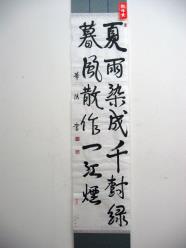 夏雨染成千樹綠
暮風散作一江煙